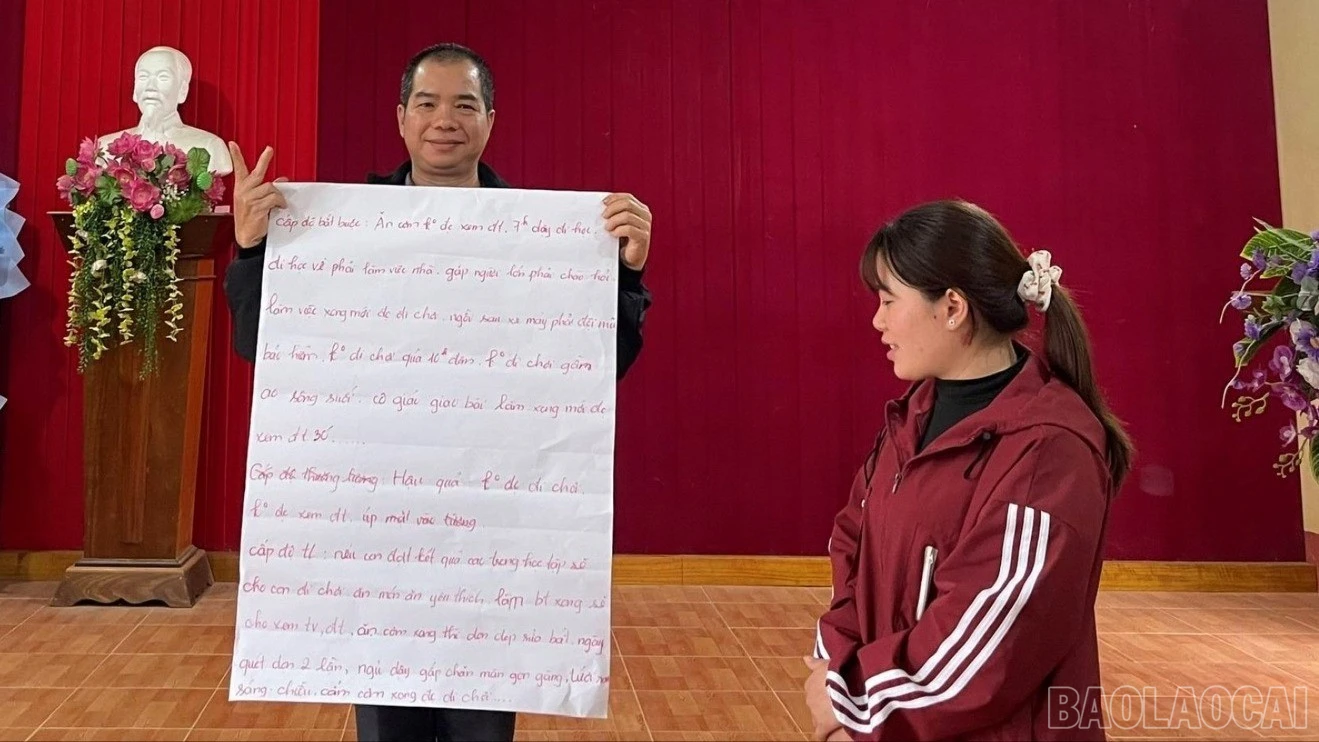 Cấp độ bắt buộc: Ăn cơm k° đc xem đt. 7h dậy đi học.
đi học về phải làm việc nhà. gặp người lớn phải chào hỏi.
làm việc xong mới đc đi chơi. ngồi sau xe máy phải đội mũ
bảo hiểm. k° đi chơi quá 10h đêm. k° đi chơi gần
ao sông suối. cô giái giao bài làm xong mới đc
xem đt 30'......
Cấp độ thương lượng: Hậu quả k° đc đi chơi.
k° đc xem đt. úp mặt vào tường
cấp độ tl: nếu con đạt kết quả cao trong học tập sẽ
cho con đi chơi ăn món ăn yêu thích. làm bt xong sẽ
cho xem tv, đt, ăn cơm xong thì dọn dẹp rửa bát. ngày
quét dọn 2 lần, ngủ dậy gấp chăn màn gọn gàng, tưới
sáng. chiều. cắm cơm xong đc đi chơi....
BAOLAOCAI